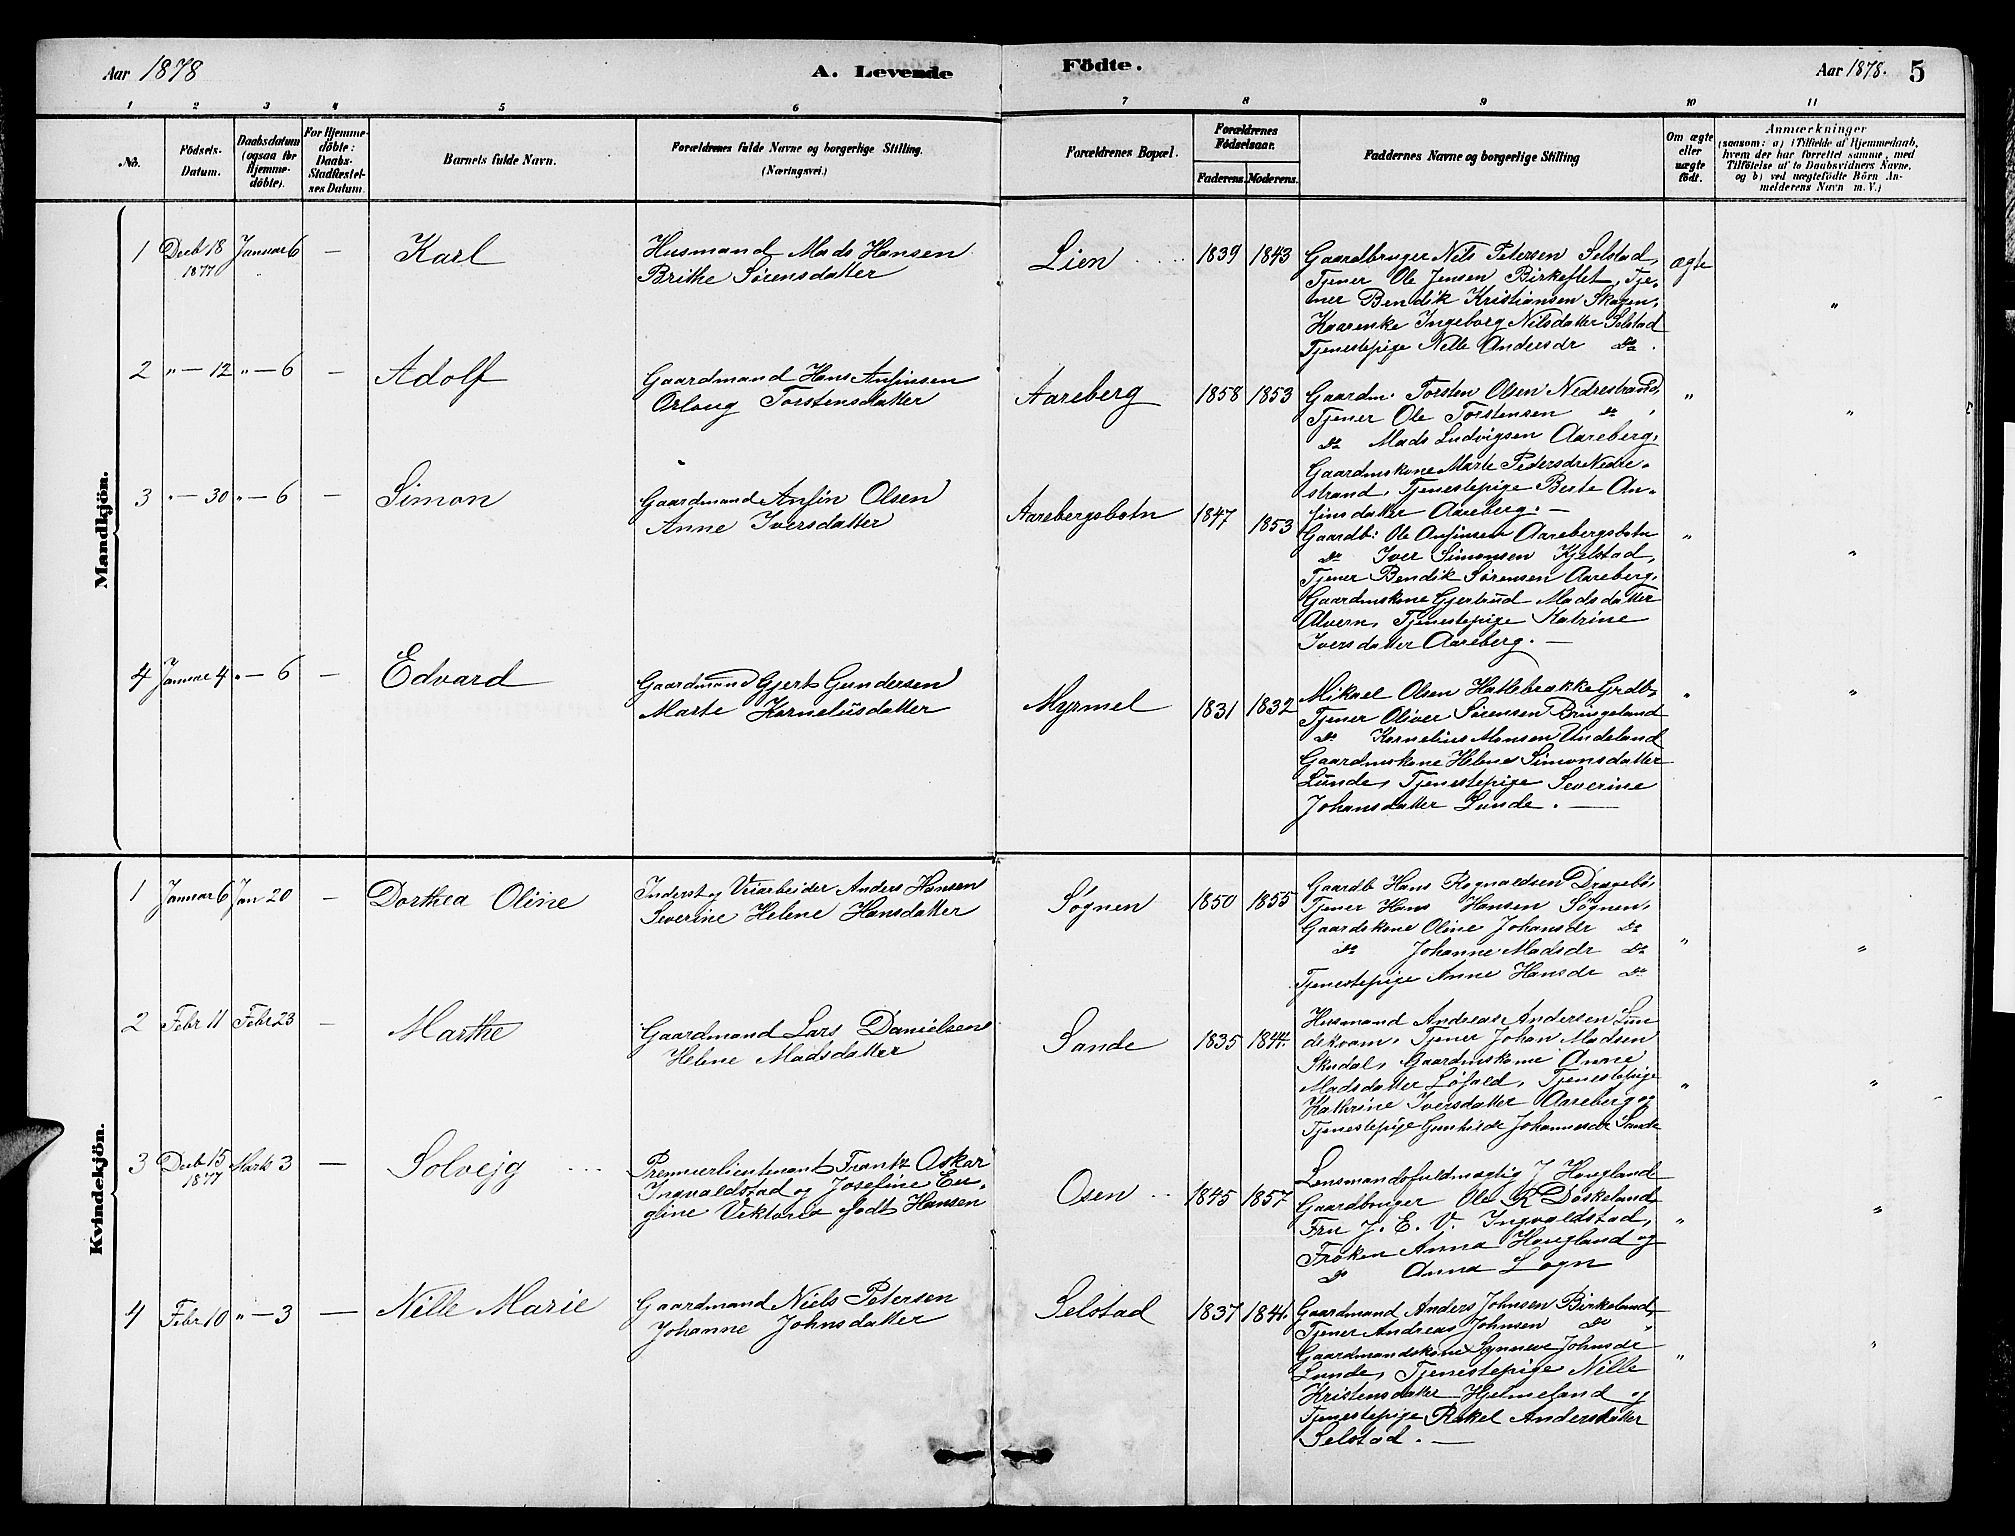 Aar 1878 A. Levende Födte. Aar 1878. 5
1 2 3 4 5 6 7 8 9 10 11
No.
Födsels-Datum.
Daabsdatum (ogsaa for Hjemme-döbte).
For Hjemme-döbte: Daabs-Stadfæstel-ses Datum.
Barnets fulde Navn.
Forældrenes fulde Navne og borgerlige Stilling.
(Næringsvei.)
Forældrenes Bopæl.
Forældrenes Födselsaar.
Faderens. Moderens.
Faddernes Navne og borgerlige Stilling
Om ægte eller uægte födt.
Anmærkninger
(saasom: a) i Tilfælde af Hjemmedaab,
hvem der har forrettet samme, med
Tilföielse af to Daabsvidners Navne,
og b) ved uægtefödte Börn An-
melderens Navn m. V.)
Mandkjön.
1 Decb 18 1877 Januar 6 — Karl
Husmand Mads Hansen
Brithe Sörensdatter
Lien 1839 1843
Gaardbruger Nils Petersen Selstad,
Tjener Ole Jensen Birkeflet, Tje-
ner Bendik Kristiansen Skagen,
Kaarenke Ingeborg Nilsdatter Selstad
Tjenestepige Nille Andersdr Do.
ægte "
2 " — 12 " — 6 — Adolf
Gaardmand Hans Anfinsen
Orloug Torstensdatter
Aareberg 1858 1853
Gaardm. Torsten Olsen Nedrestrand,
Tjener Ole Torstensen Do,
Do Mads Ludvigsen Aareberg,
Gaardmskone Marte Pedersdr Nedre-
strand, Tjenestepige Berte An-
finsdatter Aareberg. —
" "
3 " — 30 " — 6 — Simon
Gaardmand Anfin Olsen
Anne Iversdatter
Aarebergsbotn 1847 1853
Gaardb. Ole Anfinsen Aarebergsbotn
Do Iver Simonsen Kjelstad,
Tjener Bendik Sörensen Aareberg,
Gaardmskone Gjertrud Madsdatter
Alvern, Tjenestepige Katrine
Iversdatter Aareberg. —
" "
4 Januar 4 " — 6 — Edvard
Gaardmand Gjert Gundersen
Marte Kornelüsdatter
Myrmel 1831 1832
Mikael Olsen Hatlebrække Grdb,
Tjener Oliver Sörensen Brungeland
Do Kornelius Monsen Undeland
Gaardmskone Helene Simonsdatter
Lunde, Tjenestepige Severine
Johansdatter Lunde. —
" "
Kvindekjön.
1 Januar 6 Jan 20 — Dorthea Oline
Inderst og Veiarbeider Anders Hansen
Severine Helene Hansdatter
Sögnen 1850 1855
Gaardb Hans Rognaldsen Dragebö,
Tjener Hans Hansen Sögnen,
Gaardskone Oline Johansdr Do
Do Johanne Madsdr Do
Tjenestepige Anne Hansdr Do
" "
2 Febr 11 Febr 23 — Marthe
Gaardmand Lars Danielsen
Helene Madsdatter
Sande 1835 1844.
Husmand Andreas Andersen Sun
dekvam, Tjener Johan Madsen
Skudal, Gaardmskone Anne
Madsdatter Löfald, Tjenestepige
Kathrine Iversdatter Aareberg og
Tjenestepige Gunhilde Johannesdr Sande
" "
3 Decb 15 1877 Marts 3 — Solvejg
Premierlieutenant Frantz Oskar
Ingvaldstad og Josefine Eu-
gline Viktoria födt Hansen
Osen 1845 1857
Lensmandsfuldmægtig J Hougland
Gaardbruger Ole R Döskeland
Fru J. E. V. Ingvaldstad,
Fröken Anna Hougland og
Do Anna Sogn
" "
4 Febr 10 " — 3 — Nille Marie
Gaardmand Niels Petersen
Johanne Johnsdatter
Selstad 1837 1841.
Gaardmand Anders Johnsen Birkeland,
Tjener Andreas Johnsen Do,
Gaardmandskone Synneve Johnsdr
Lunde, Tjenestepige Nille
Kristensdatter Hjelmeland og
Tjenestepige Rakel Andersdatter
Selstad. —
" "